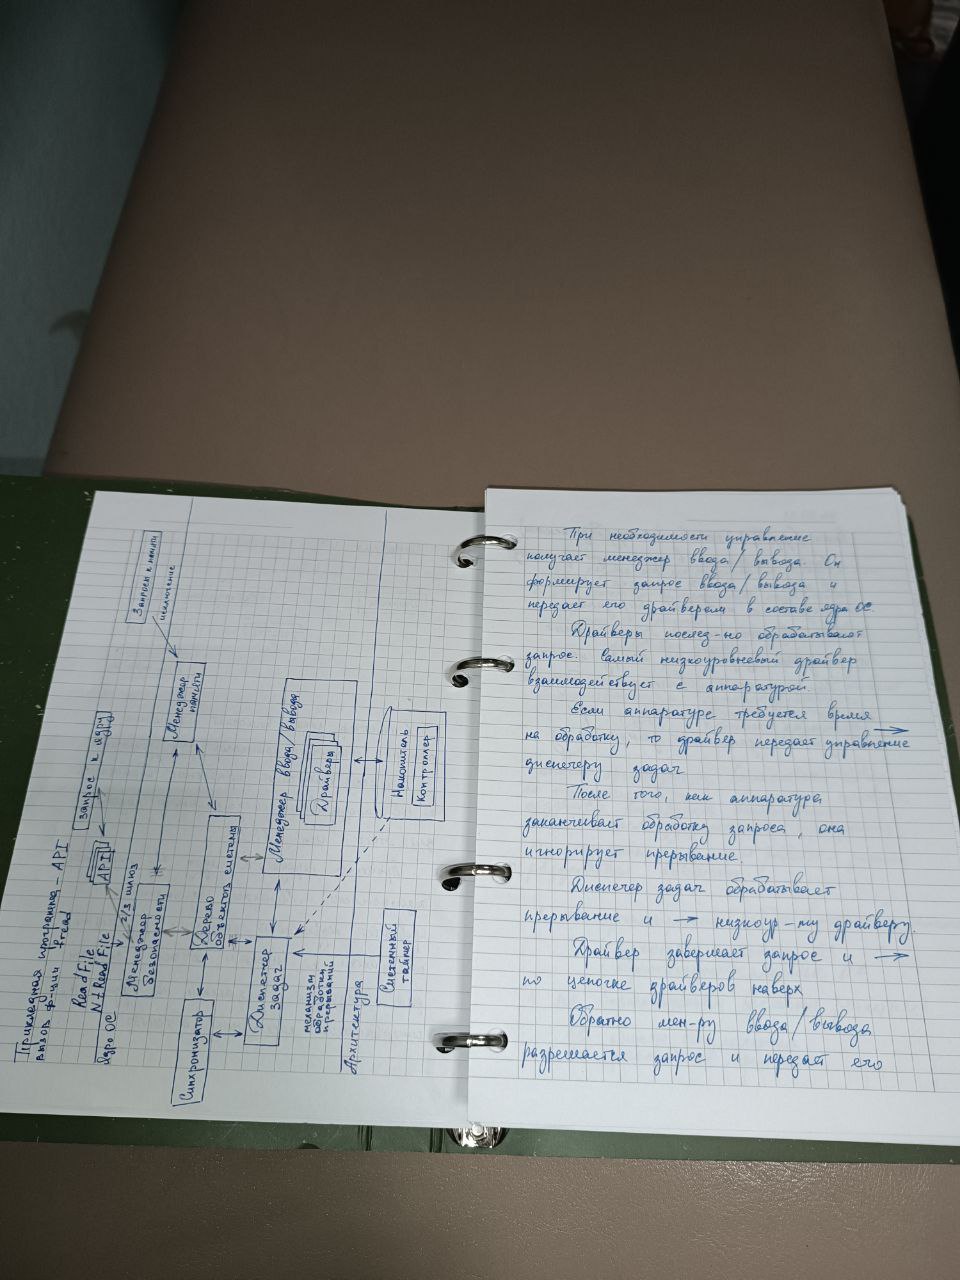 Прикладная программа - API
вызов ф-ции fread
ReadFile
NtReadFile
Ядро ОС
2/3 шлюз
API
Запрос к ядру
Запросы к памяти
исключение
Менеджер
безопасности
Менеджер
памяти
Синхронизатор
Дерево
объектов системы
Диспетчер
задач
Менеджер ввода/вывода
Драйверы
механизм
обработки
прерываний
Архитектура
Системный
таймер
Накопитель
Контроллер
При необходимости управление
получает менеджер ввода/вывода. Он
формирует запрос ввода/вывода и
передает его драйверам в составе ядра ОС.
Драйверы послед-но обрабатывают
запрос. Самый низкоуровневый драйвер
взаимодействует с аппаратурой.
Если аппаратуре требуется время →
на обработку, то драйвер передает управление
диспетчеру задач
После того, как аппаратура
заканчивает обработку запроса, она
игнорирует прерывание.
Диспечер задач обрабатывает
прерывание и → низкоур-му драйверу.
Драйвер завершает запрос и →
по цепочке драйверов наверх
Обратно мен-ру ввода/вывода
разрешается запрос и передает его